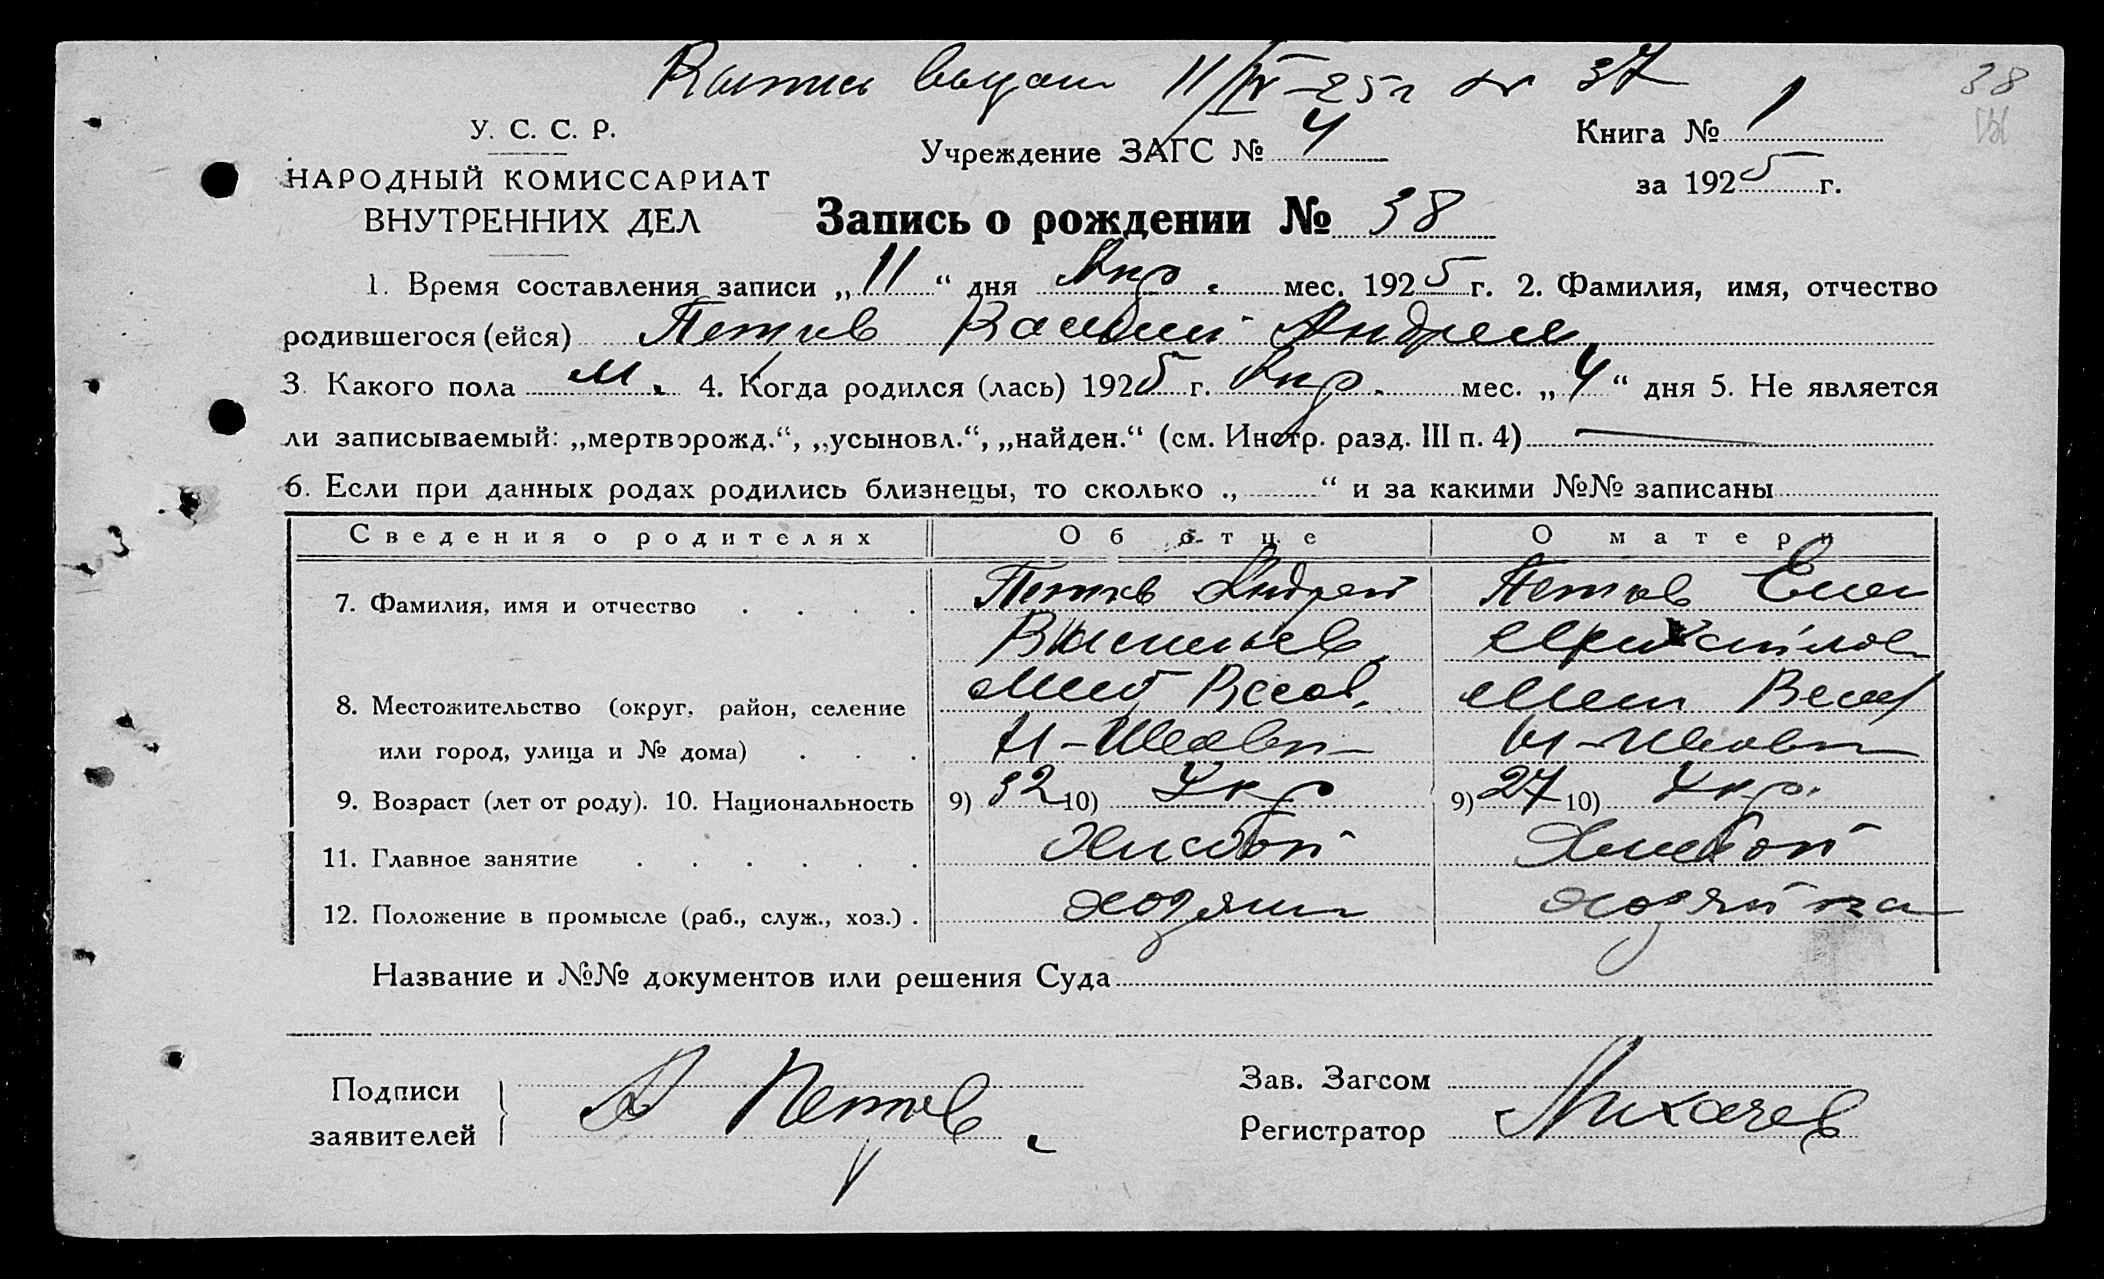 выдан 11/IV-25г № 37
38
У. С. С. Р.
Учреждение ЗАГС № 4
Книга № 1
НАРОДНЫЙ КОМИССАРИАТ
за 1925 г.
ВНУТРЕННИХ ДЕЛ
Запись о рождении № 38
1. Время составления записи „11“ дня Апр. мес. 1925 г. 2. Фамилия, имя, отчество
родившегося (ейся) Петров Василий Андреев
3. Какого пола м. 4. Когда родился (лась) 1925 г. Апр. мес. „4“ дня 5. Не является
ли записываемый: „мертворожд.“, „усыновл.“, „найден.“ (см. Инстр. разд. III п. 4) —
6. Если при данных родах родились близнецы, то сколько „ “ и за какими №№ записаны
Сведения о родителях Об отце О матери
7. Фамилия, имя и отчество . . . . Петров Андрей Петров Елен
Васильев
8. Местожительство (округ, район, селение
или город, улица и № дома) . . .
9. Возраст (лет от роду). 10. Национальность 9) 32 10) Укр 9) 27 10) Укр.
11. Главное занятие . . . . . . Хлебоп Хлебоп
12. Положение в промысле (раб., служ., хоз.) . хозяин хозяйка
Название и №№ документов или решения Суда
Подписи
заявителей
А Петров
Зав. Загсом
Регистратор
Лихачев